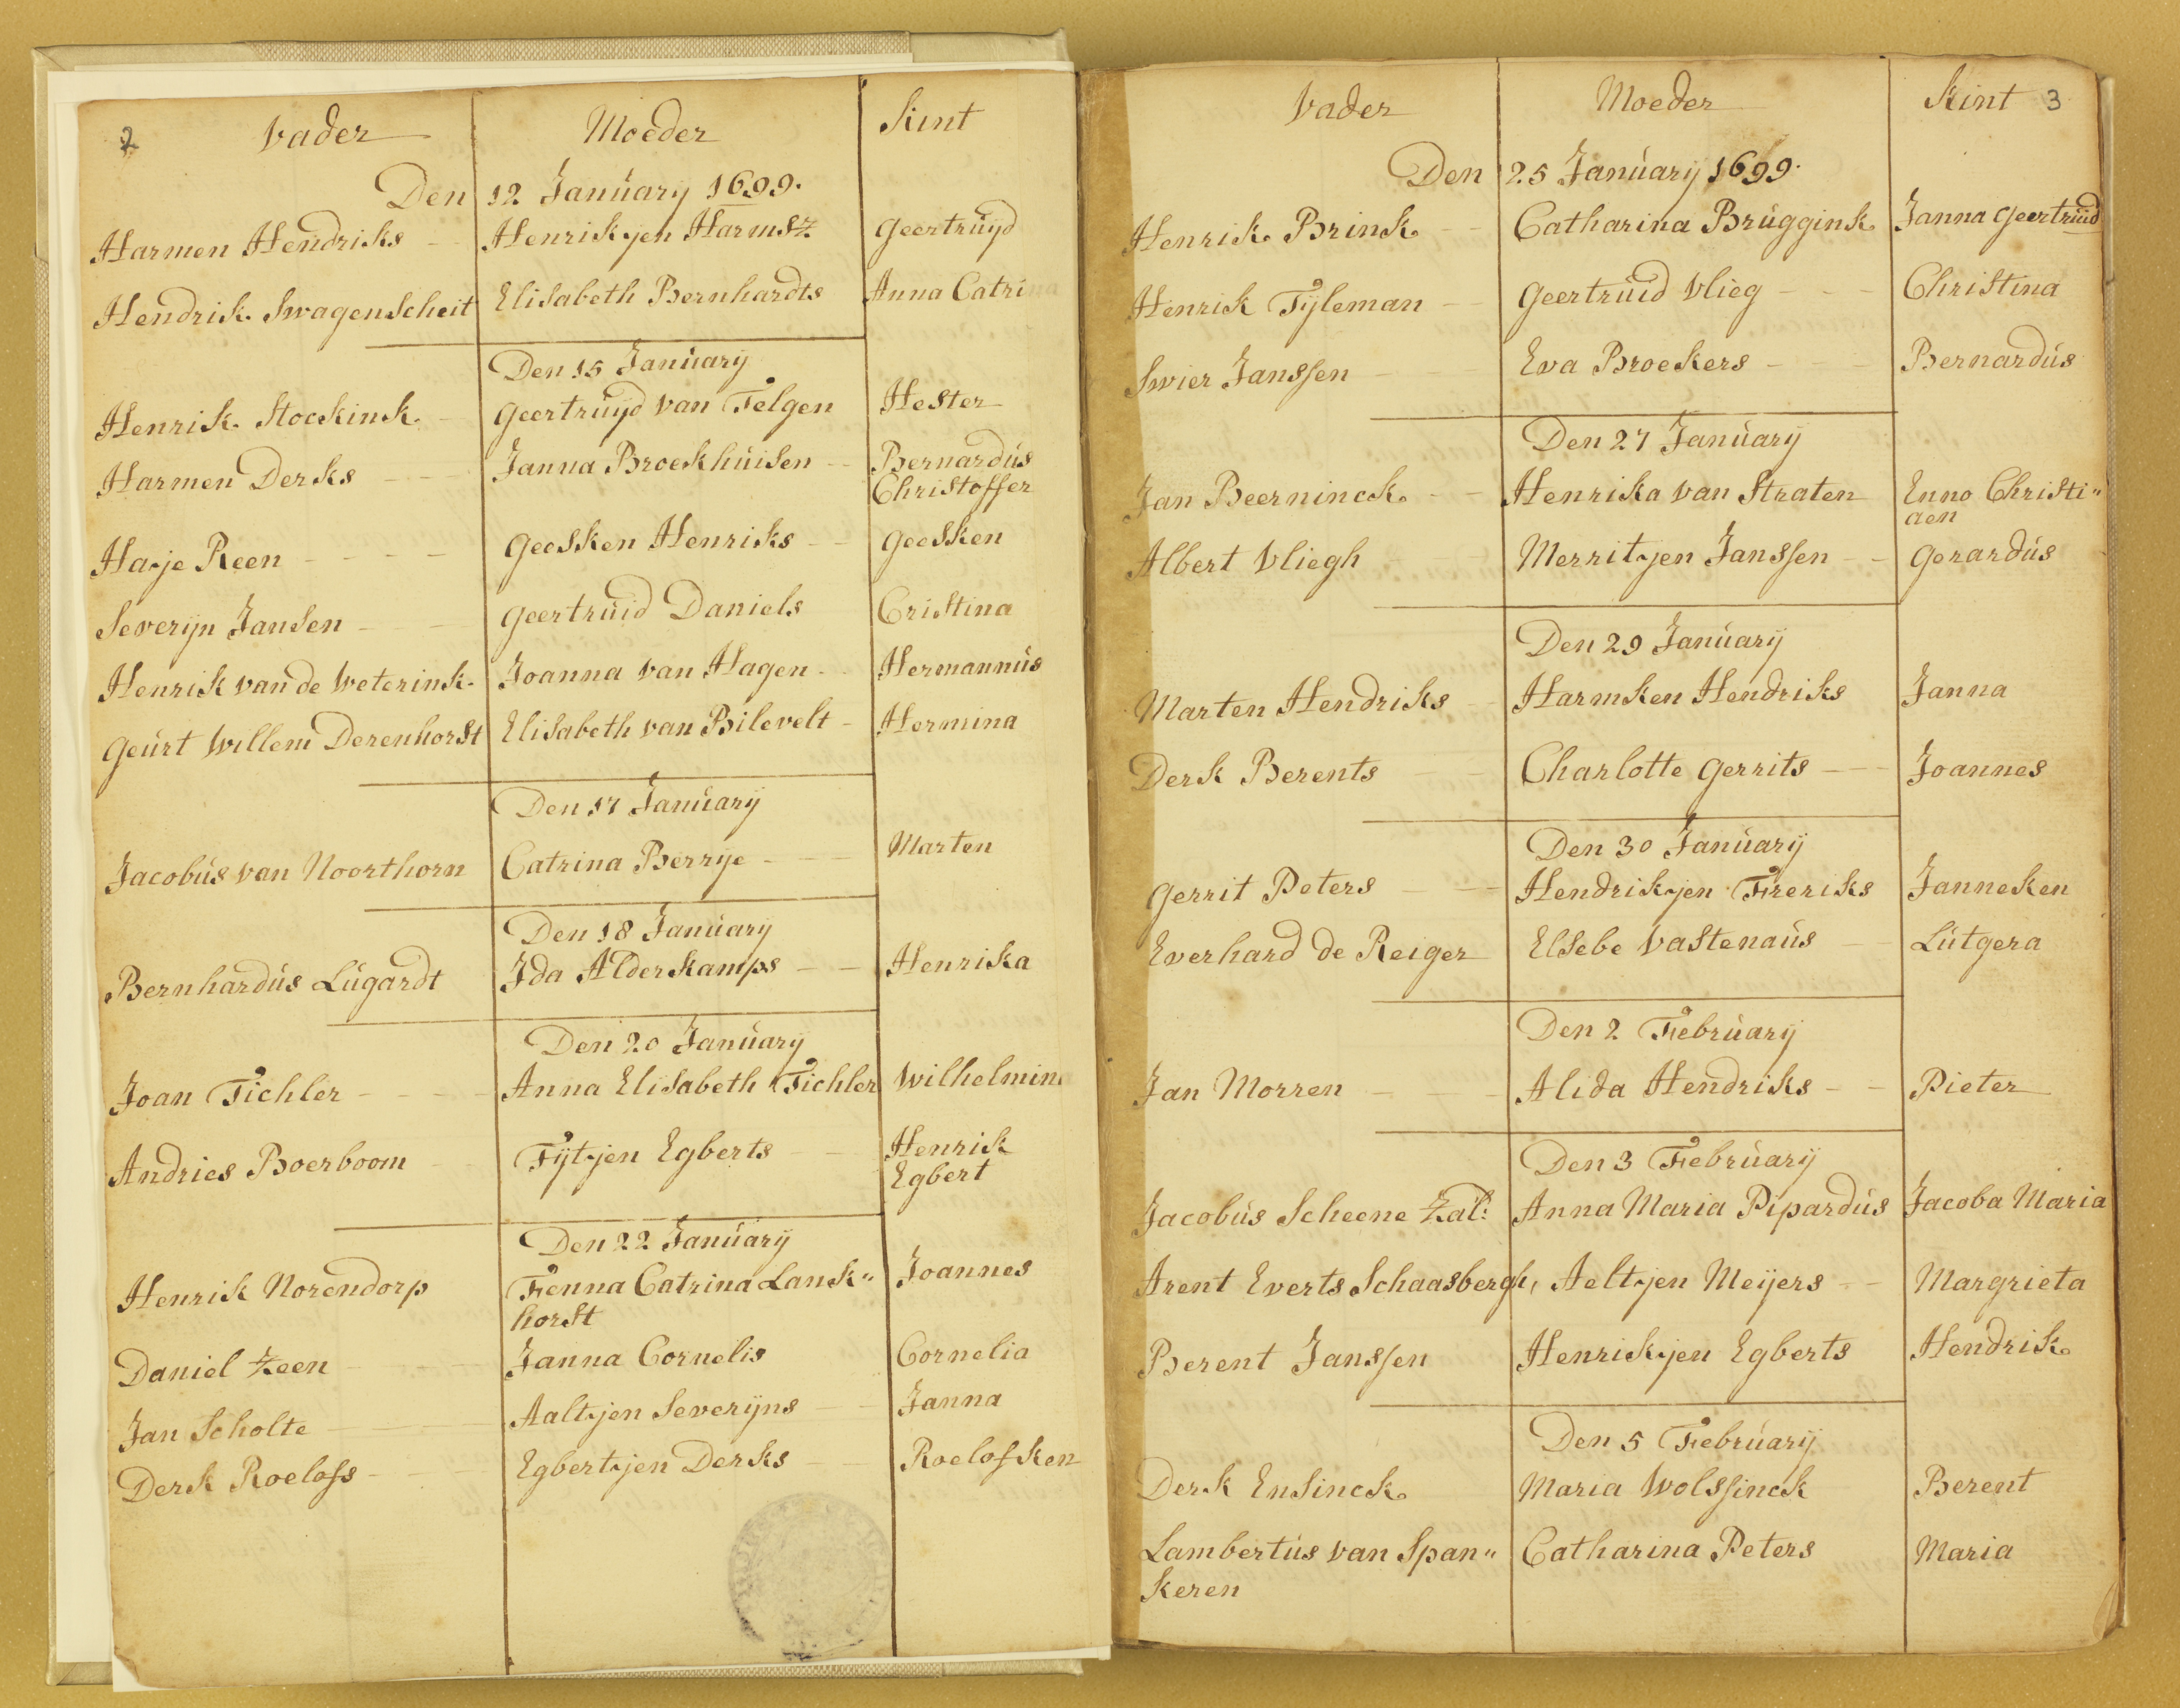 2 Vader Moeder Kint
Den 12 Januarij 1699.
Harmen Hendriks Henrikjen Harmsz Geertruijd
Hendrik Swagenscheit Elisabeth Bernhardts Anna Catrina
Den 15 Januarij
Henrik Stockink Geertruijd van Telgen Hester
Harmen Derks Janna Broekhuisen Bernardus
Christoffer
Harje Reen Geesken Henriks Geesken
Severijn Jansen Geertruid Daniels Cristina
Henrik van de Weterink Joanna van Hagen Hermannus
Geurt Willem Derenhorst Elisabeth van Bilevelt Hermina
Den 17 Januarij
Jacobus van Noorthorn Catrina Berrije Marten
Den 18 Januarij
Bernhardus Lugardt Ida Alderkamps Henrika
Den 20 Januarij
Joan Tichler Anna Elisabeth Tichler Wilhelmina
Andries Boerboom Fijtjen Egberts Henrik
Egbert
Den 22 Januarij
Henrik Norendorp Fenna Catrina Lank" Joannes
horst
Daniel Zeen Janna Cornelis Cornelia
Jan Scholte Aaltjen Severijns Janna
Derk Roelofs Egbertjen Derks Roelofken
Vader Moeder Kint 3
Den 25 Januarij 1699.
Henrik Brink Catharina Bruggink Janna Geertruid
Henrik Tijleman Geertruid Vlieg Christina
Swier Janssen Eva Broekers Bernardus
Den 27 Januarij
Jan Beerninck Henrika van Straten Enno Christi"
aen
Albert Vliegh Merritjen Janssen Gerardus
Den 29 Januarij
Marten Hendriks Harmken Hendriks Janna
Derk Berents Charlotte Gerrits Joannes
Den 30 Januarij
Gerrit Peters Hendrikjen Freriks Janneken
Everhard de Reiger Elsebe Vastenaus Lutgera
Den 2 Februarij
Jan Morren Alida Hendriks Pieter
Den 3 Februarij
Jacobus Scheene Zal: Anna Maria Pipardus Jacoba Maria
Arent Everts Schaasbergh, Aeltjen Meijers Margrieta
Berent Janssen Henrickjen Egberts Hendrik
Den 5 Februarij
Derk Ensinck Maria Wolssinck Berent
Lambertus van Span" Catharina Peters Maria
keren